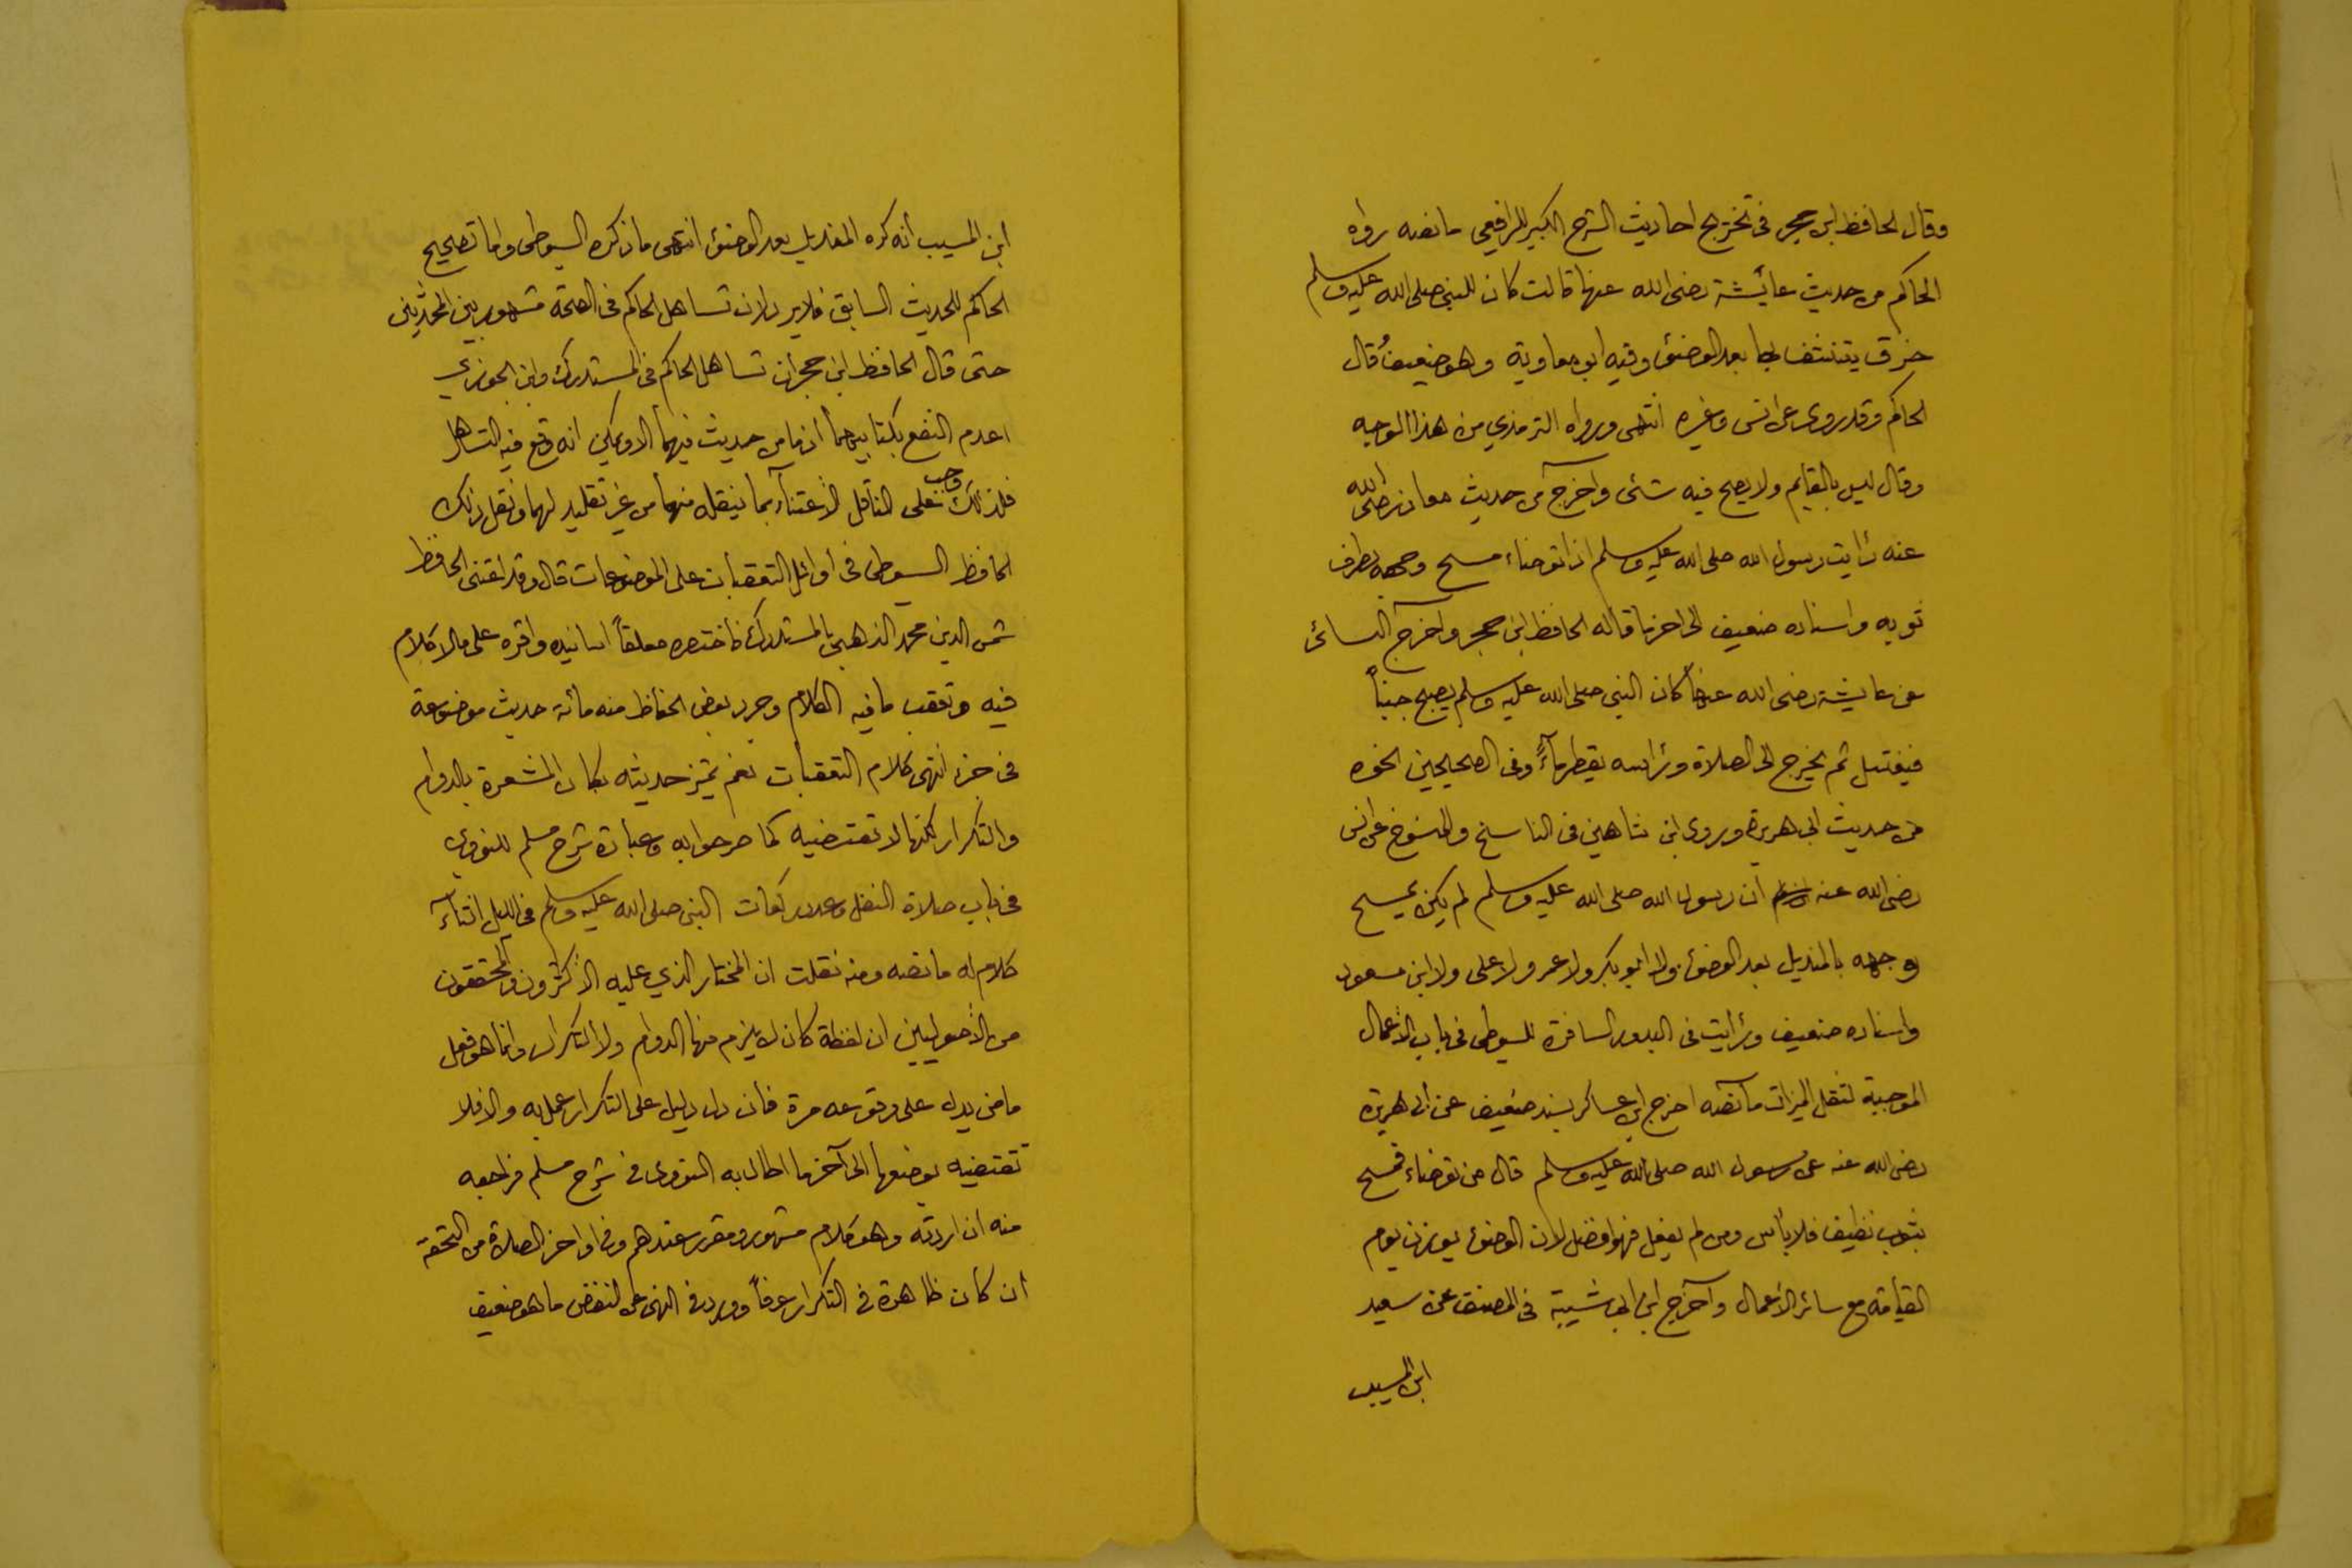 وقال الحافظ ابن حجر فى تخريج احاديث الشرح الكبير للرافعي ما نصه رواه
الحاكم من حديث عائيشة رضى الله عنها قالت كان للنبى صلى الله عليه وسلم
خرق يتنشف بها بعد الوضوئ وفيه ابو معاوية وهو ضعيف قال
الحاكم وقد روى عن انس وغيره انتهى ورواه الترمذي من هذا الوجه
وقال ليس بالقايم ولا يصح فيه شئى واخرج من حديث معاذ رضى الله
عنه رأيت رسول الله صلى الله عليه وسلم اذا توضاء مسح وجهه بطرف
ثوبه واسناده ضعيف الى اخر ما قاله الحافظ ابن حجر واخرج النسائى
عن عايشة رضى الله عنها كان النبى صلى الله عليه وسلم يصبح جنباً
فيغتسل ثم يخرج الى الصلاة ورأسه يقطر مآءً وفى الصحيحين نحوه
من حديث ابى هريرة وروى ابن شاهين فى الناسخ والمنسوخ عن انس
رضى الله عنه ان رسول الله صلى الله عليه وسلم لم يكن يمسح
وجهه بالمنديل بعد الوضوئ ولا ابو بكر ولا عمر ولا على ولا ابن مسعود
واسناده ضعيف ورأيت فى البدور السافرة للسيوطى فى باب الأعمال
الموجبة لثقل الميزان ما نصه اخرج ابن عساكر بسند ضعيف عن أبى هريرة
رضى الله عنه عن رسول الله صلى الله عليه وسلم قال من توضاء فمسح
بثوب نظيف فلا بأس ومن لم يفعل فهو افضل لان الوضوئ يوزن يوم
القيامة مع سائر الأعمال وآخرج ابن ابى شيبة فى المصنف عن سعيد
ابن المسيب
ابن المسيب انه كره المنديل بعد الوضوئ انتهى ما ذكره السيوطى واما تصحيح
الحاكم للحديث السابق فلا يرد لان تساهل الحاكم فى الصحة مشهور بين المحدثين
حتى قال الحافظ ابن حجر ان تساهل الحاكم فى المستدرك وابن الجوزي
اعدم النفع بكتابيهما اذ ما من حديث فيهما الا ويمكن انه وقع فيه التساهل
فلذالك وجب على الناقل الأعتناء بما ينقله منهما من غير تقليد لهما ونقل ذلك
الحافظ السيوطى فى اوائل التعقبات على الموضوعات قال وقد اعتنى الحافظ
شمس الدين محمد الذهبى بالمستدرك فاختصره معلقاً اسانيده واقره على ما لا كلام
فيه وتعقب ما فيه الكلام وجرد بعض الحفاظ منه مائة حديث موضوعة
فى جزء انتهى كلام التعقبات نعم حديثه بكان المشعرة بالدوام
والتكرار لكنها لا تقتضيه كما صرحوا به وعبارة شرح مسلم للنووي
فى باب صلاة النفل وعدد ركعات النبى صلى الله عليه وسلم فى الليل اثناء
كلام له ما نصه ومنه نقلت ان المختار الذي عليه الأكثرون والمحققون
من الأصوليين ان لفظة كان لا يلزم منها الدوام ولا التكرار وانما هو فعل
ماض يدل على وقوعه مرة فان دل دليل على التكرار عمل به والا فلا
تقتضيه بوضعها الى آخر ما اطال به النووى فى شرح مسلم فراجعه
منه ان اردته وهو كلام مشهور ومقرر عندهم وفى اواخر الصلاة من التحفة
ان كان ظاهرة فى التكرار عرفاً وورد فى النهى عن النفض ما هو ضعيف